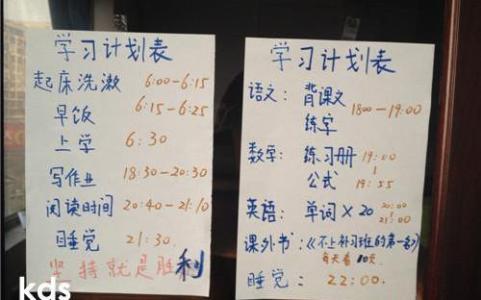 学习计划表
起床洗漱 6:00-6:15
早饭 6:15-6:25
上学 6:30
写作业 18:30-20:30
阅读时间 20:40-21:10
睡觉 21:30.
坚持就是胜利
学习计划表
语文: 背课文 1800-19:00
练字
数学: 练习册 19:00
公式 19:55
英语: 单词×20 20:00
21:00
课外书:《不上补习班的第一名》
每天看
睡觉: 22:00.
kds